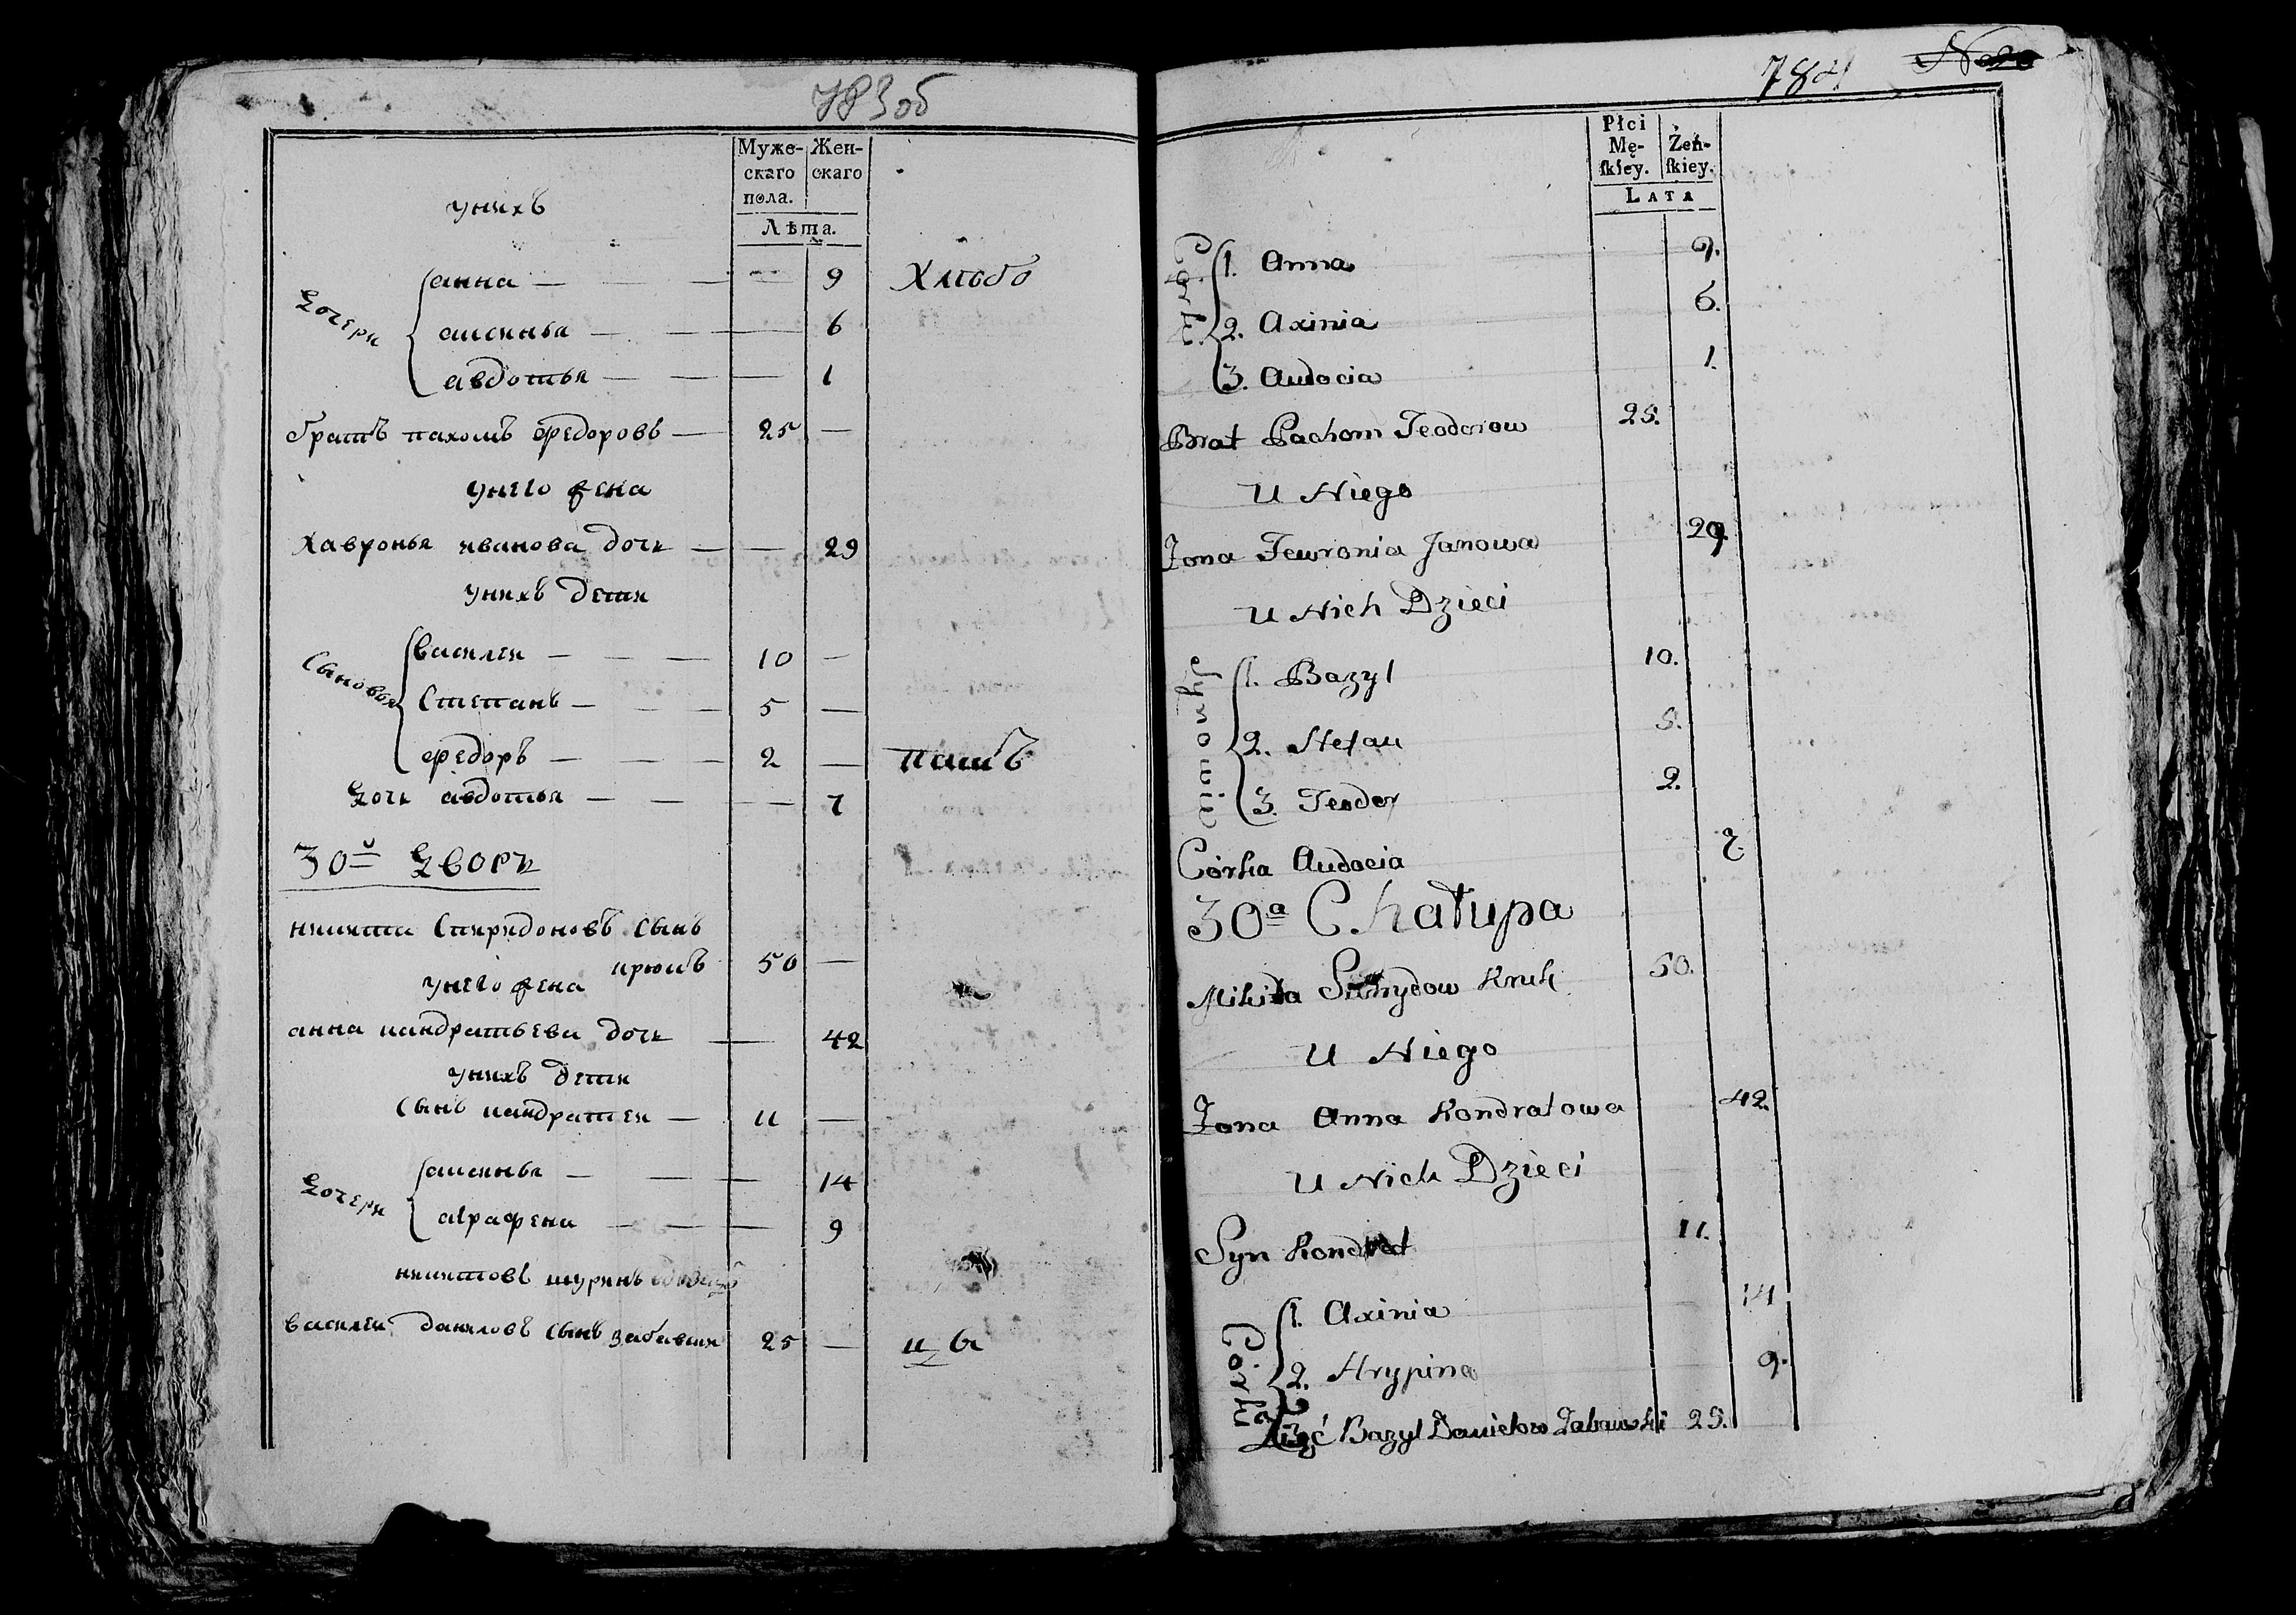 783об
Муже-
скаго
пола.
Жен-
скаго
Лѣта.
унихъ
Дочери
анна — 9
аксинья — 6
авдотья — 1
братъ пахомъ федоровъ — 25 —
унего жена
Хавронья иванова дочь — 29
унихъ дети
Сыновья
василеи — 10 —
Степанъ — 5 —
федоръ — 2 —
Дочь авдотья — 7
30й Дворъ
никита Спиридоновъ Сынъ
крюкъ 50 —
унего жена
анна кандратьева дочь — 42
унихъ дети
Сынъ кандратеи — 11 —
Дочери
аксинья — 14
аграфена — 9
никитовъ шуринъ
василеи даниловъ Сынъ 25 —
784
Płci
Mę-
ſkiey.
Żeń-
ſkiey.
LATA
Corki
1. Anna 9.
2. Axinia 6.
3. Audocia 1.
Brat Pachom Teodorow 25.
U Niego
Żona Fewronia Janowa 29.
U Nich Dzieci
Synowie
1. Bazyl 10.
2. Stefan 5.
3. Teodor 2.
Córka Audocia 7.
30a Chałupa
Mikita Kruk 50.
U Niego
Żona Anna Kondratowa 42.
U Nich Dzieci
Syn Kondrat 11.
Corki
1. Axinia 14
2. Hrypina 9.
Zięć Bazyl Danielow Zabawski 25.